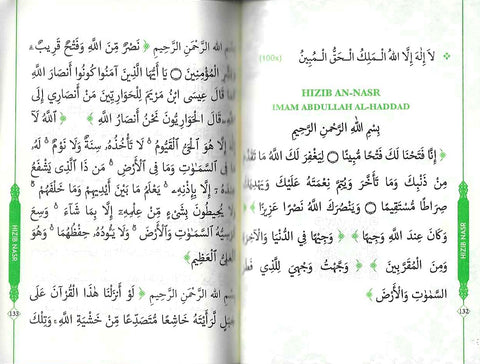 لاَ إِلٰهَ إِلَّا اللهُ الْمَلِكُ الْحَقُّ الْمُبِيْنُ (100x)
HIZIB AN-NASR
IMAM ABDULLAH AL-HADDAD
بِسْمِ اللهِ الرَّحْمٰنِ الرَّحِيْمِ
﴿ إِنَّا فَتَحْنَا لَكَ فَتْحًا مُّبِينًا ۝ لِيَغْفِرَ لَكَ اللَّهُ مَا
مِنْ ذَنْبِكَ وَمَا تَأَخَّرَ وَيُتِمَّ نِعْمَتَهُ عَلَيْكَ وَيَهْدِيَكَ
صِرَاطًا مُّسْتَقِيمًا ۝ وَيَنْصُرَكَ اللَّهُ نَصْرًا عَزِيزًا ﴾
وَكَانَ عِنْدَ اللَّهِ وَجِيهًا ﴾ ﴿ وَجِيْهًا فِي الدُّنْيَا
وَمِنَ الْمُقَرَّبِيْنَ ﴾ ﴿ وَجَّهْتُ وَجْهِيَ لِلَّذِي
السَّمٰوٰتِ وَالْأَرْضَ ﴾
HIZIB NASR
132
اللهِ الرَّحْمٰنِ الرَّحِيْمِ ﴿ نَصْرٌ مِّنَ اللَّهِ وَفَتْحٌ قَرِيْبٌ
الْمُؤْمِنِيْنَ ۝ يَا أَيُّهَا الَّذِيْنَ آمَنُوا كُونُوا أَنْصَارَ اللَّهِ
قَالَ عِيسَى ابْنُ مَرْيَمَ لِلْحَوَارِيِّيْنَ مَنْ أَنْصَارِي إِلَى
قَالَ الْحَوَارِيُّونَ نَحْنُ أَنْصَارُ اللَّهِ ﴾ ﴿ اَللَّهُ لَآ
إِلَّا هُوَ الْحَيُّ الْقَيُّوْمُ ۚ لَا تَأْخُذُهُ سِنَةٌ وَلَا نَوْمٌ ۚ لَهُ
السَّمٰوٰتِ وَمَا فِى الْأَرْضِ ۗ مَن ذَا الَّذِى يَشْفَعُ
إِلَّا بِإِذْنِهِ ۚ يَعْلَمُ مَا بَيْنَ أَيْدِيهِمْ وَمَا خَلْفَهُمْ ۖ
يُحِيطُونَ بِشَىْءٍ مِّنْ عِلْمِهِ إِلَّا بِمَا شَآءَ ۚ وَسِعَ
السَّمٰوٰتِ وَالْأَرْضَ ۖ وَلَا يَئُودُهُ حِفْظُهُمَا ۚ وَهُوَ
الْعَلِىُّ الْعَظِيْمُ ﴾
اللهِ الرَّحْمٰنِ الرَّحِيْمِ ﴿ لَوْ أَنْزَلْنَا هٰذَا الْقُرْآنَ عَلَى
لَّرَأَيْتَهُ خَاشِعًا مُتَصَدِّعًا مِّنْ خَشْيَةِ اللَّهِ ۚ وَتِلْكَ
HIZIB NASR
133